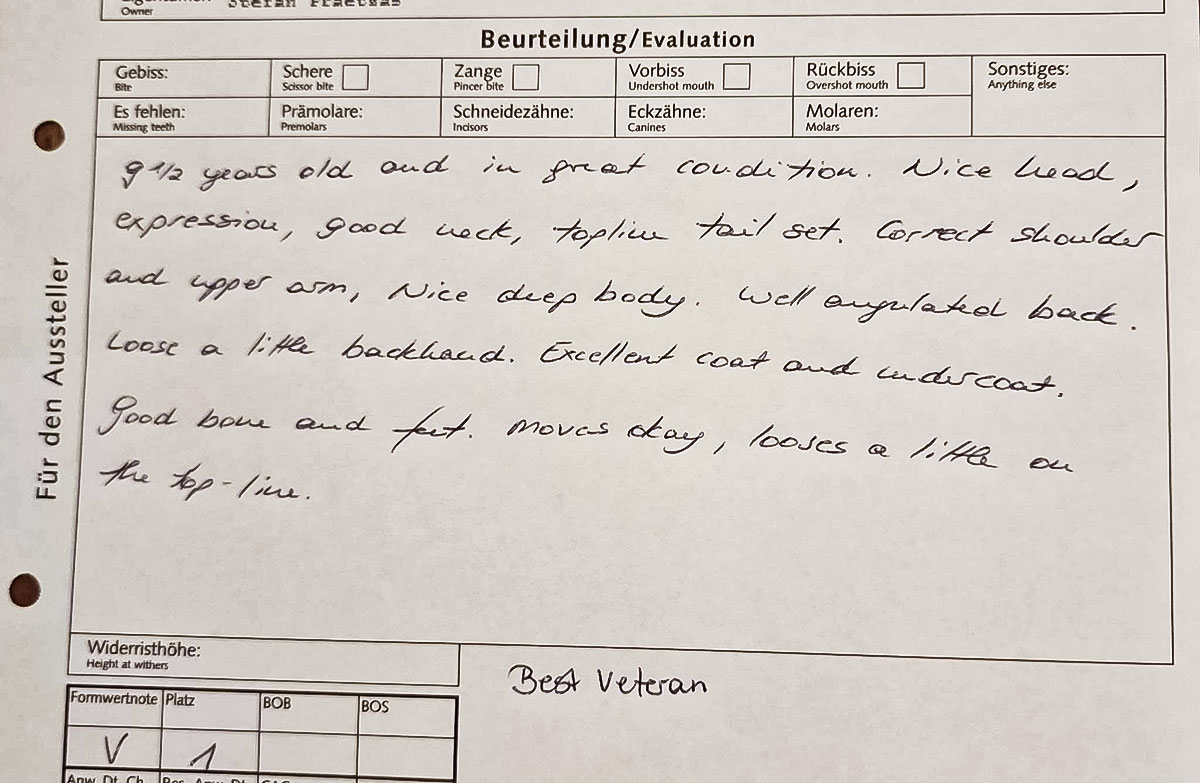 Owner
Beurteilung/Evaluation
Gebiss: Schere Zange Vorbiss Rückbiss Sonstiges:
Bite Scissor bite Pincer bite Undershot mouth Overshot mouth Anything else
Es fehlen: Prämolare: Schneidezähne: Eckzähne: Molaren:
Missing teeth Premolars Incisors Canines Molars
9 1/2 years old and in great condition. Nice head,
expression, good neck, topline tail set. Correct shoulder
and upper arm, Nice deep body. Well angulated back.
Loose a little backhand. Excellent coat and undercoat.
Good bone and feet. Moves okay, looses a little on
the top-line.
Für den Aussteller
Widerristhöhe:
Height at withers
Best Veteran
Formwertnote Platz BOB BOS
V 1